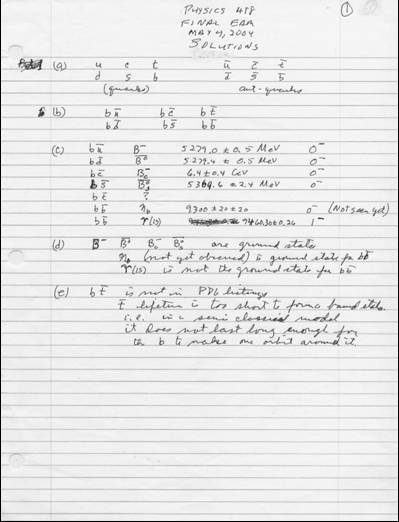 PHYSICS 418
FINAL EXAM
MAY 4, 2004
SOLUTIONS
①
(a) u c t ū c̄ t̄
d s b d̄ s̄ b̄
(quarks) anti-quarks
(b) bū bc̄ bt̄
bd̄ bs̄ bb̄
(c) bū B⁻ 5279.0 ± 0.5 MeV 0⁻
bd̄ B̄⁰ 5279.4 ± 0.5 MeV 0⁻
bc̄ B̄c⁻ 6.4 ± 0.4 GeV 0⁻
bs̄ B̄s⁰ 5369.6 ± 2.4 MeV 0⁻
bt̄ ?
bb̄ ηb 9300 ± 20 ± 20 0⁻ (Not seen yet)
bb̄ ϒ(1S) 9460.30 ± 0.26 1⁻
(d) B⁻ B̄⁰ B̄c⁻ B̄s⁰ are ground states
ηb (not yet observed) is ground state for bb̄
ϒ(1S) is not the ground state for bb̄
(e) bt̄ is not in PDG listings
t̄ lifetime is too short to form a bound state.
i.e. in a semi classical model
it does not last long enough for
the b to make one orbit around it.